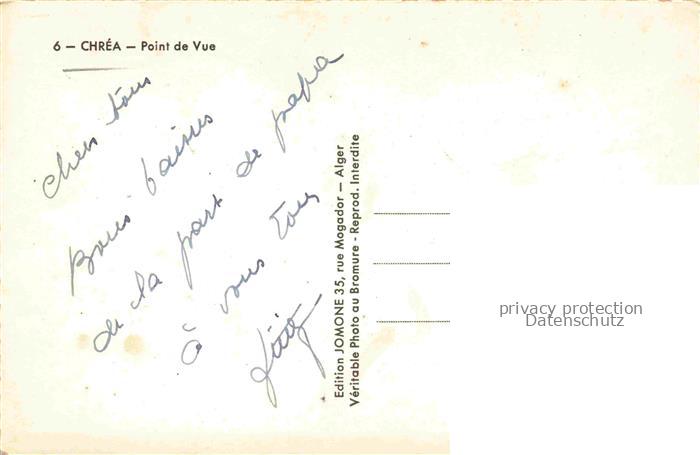 6 — CHRÉA — Point de Vue
Chers tous
Bons baisers
de la part de papa
à vous tous
Edition JOMONE 35, rue Mogador — Alger
Véritable Photo au Bromure - Reprod. Interdite
privacy protection
Datenschutz